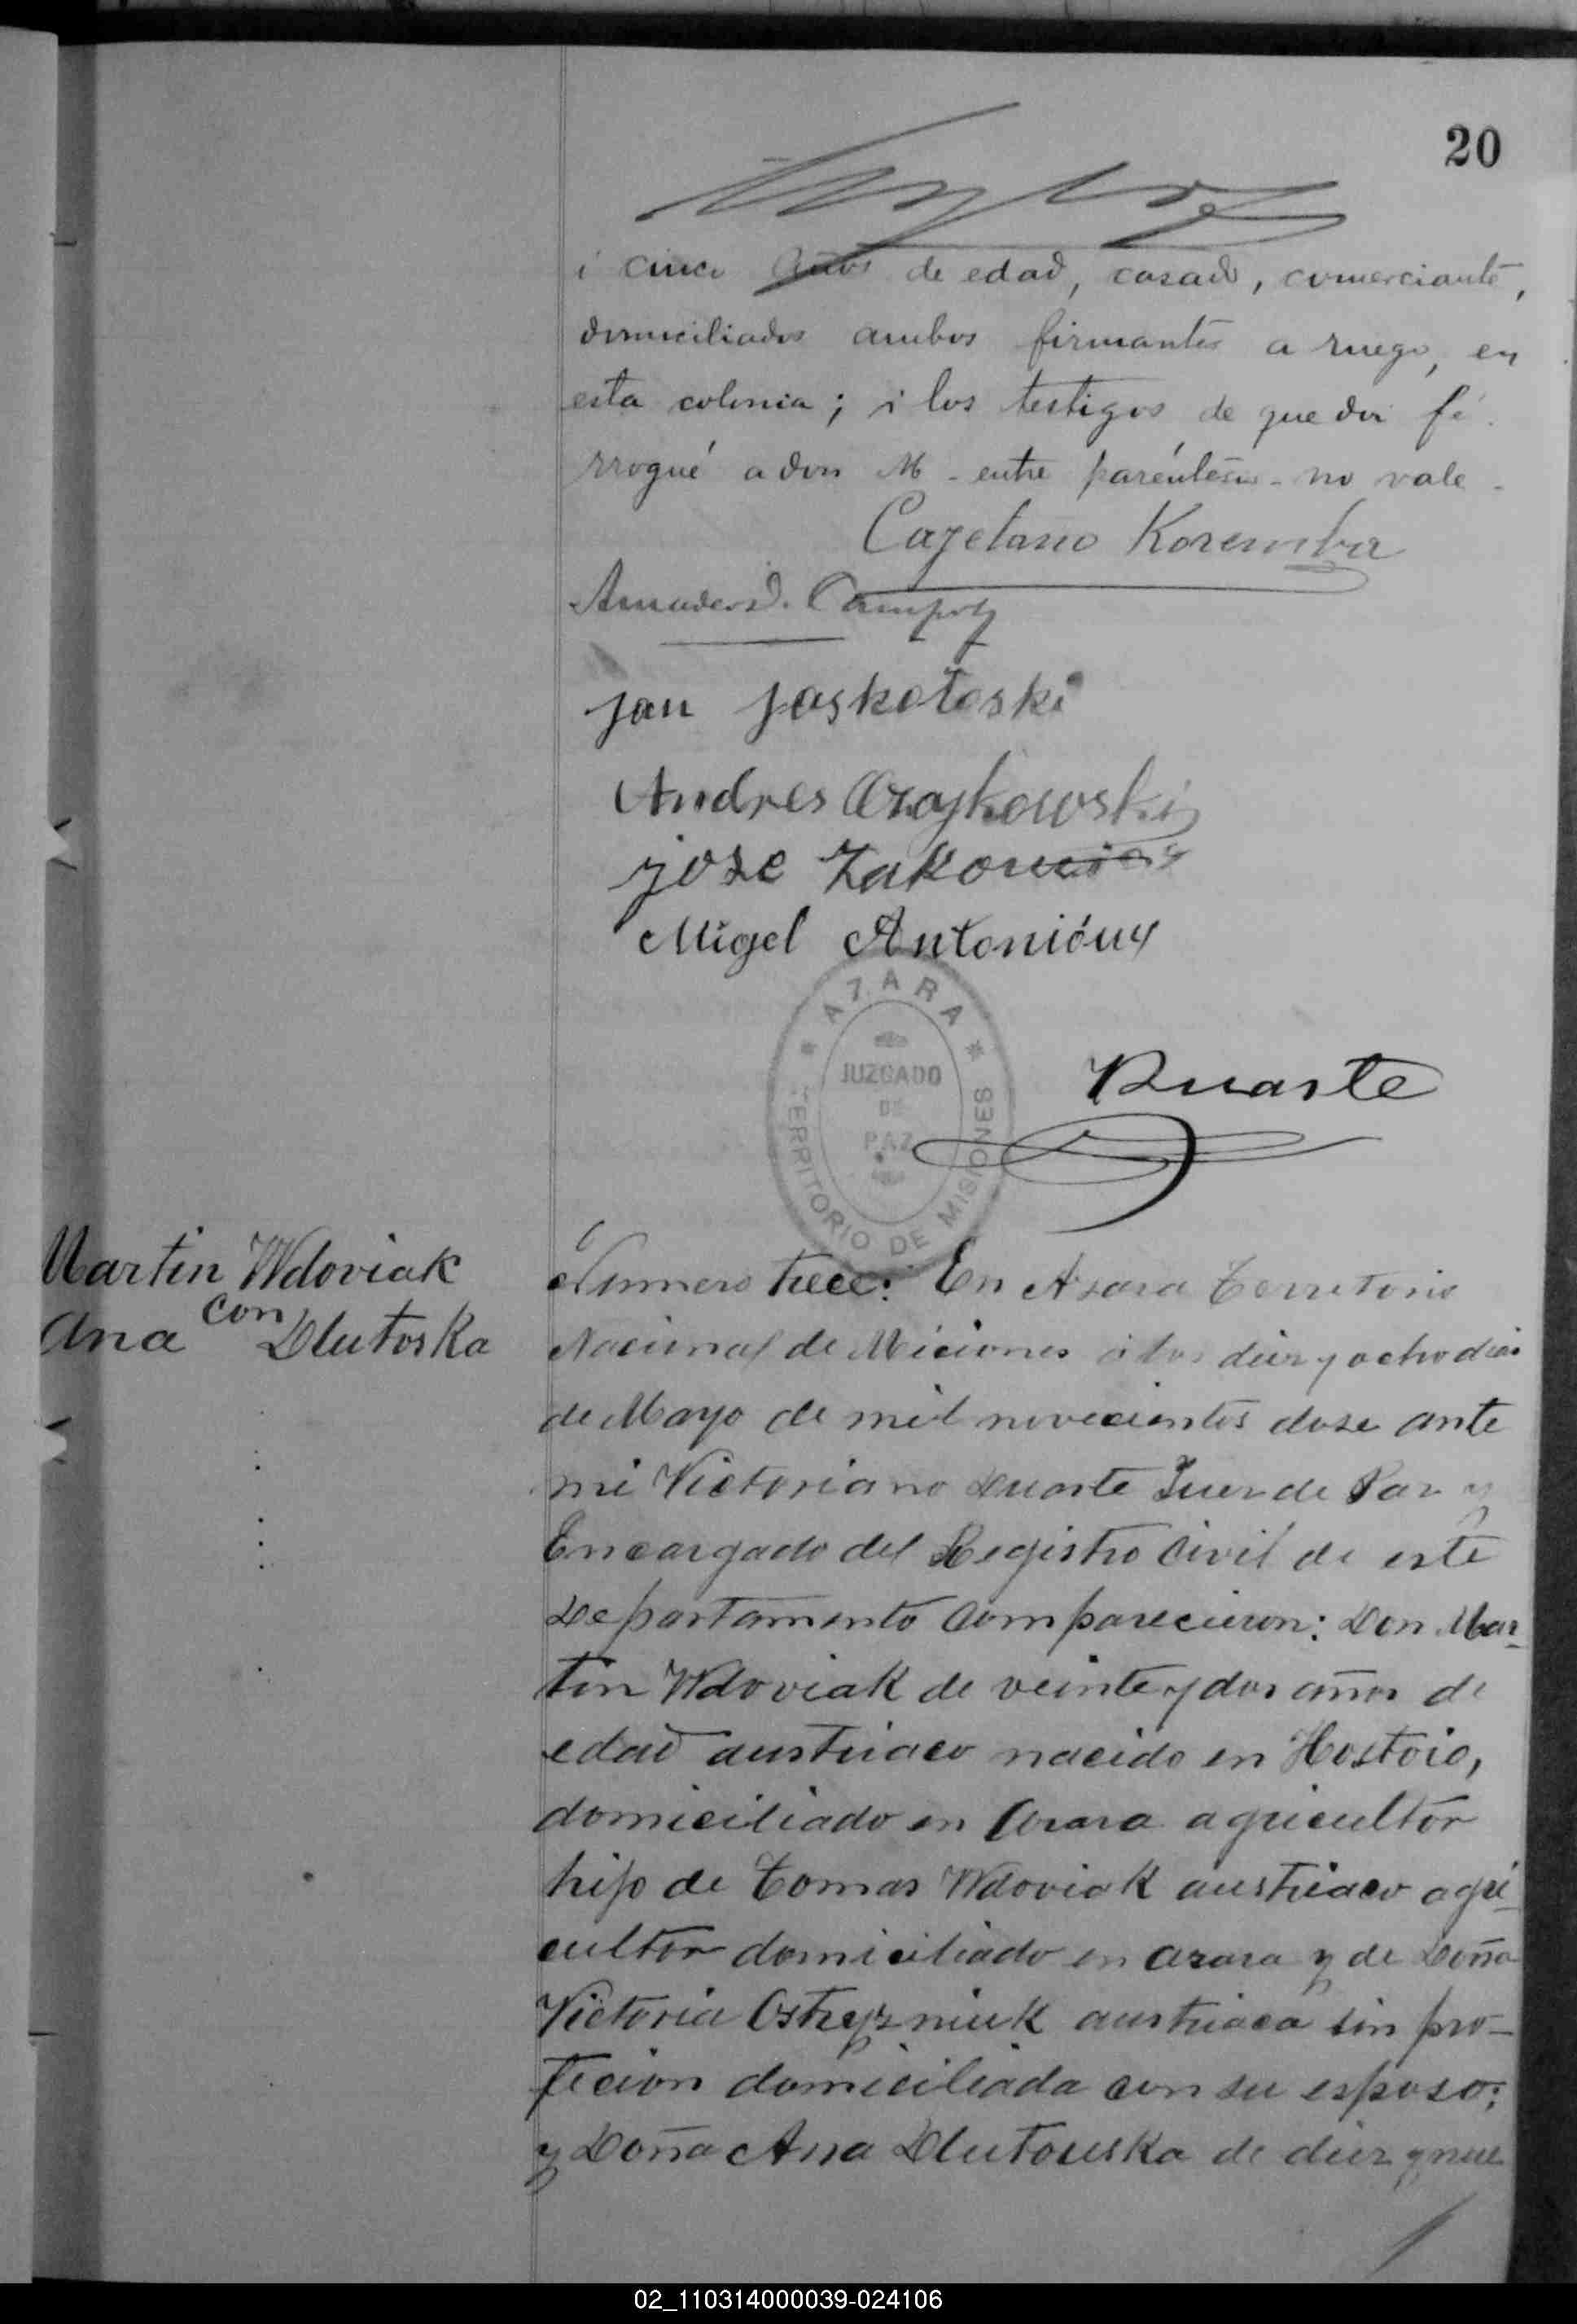 20
i cinco años de edad, casado, comerciante,
domiciliados ambos firmantes a ruego, en
esta colonia; i los testigos de que doi fé.
rrogué a don M - entre paréntesis - no vale -
Cayetano Koremba
Amadeo D. Campoy
Jan Jaskotoski
Andres Czajkowski
jose
Migel Antoniów
* AZARA *
JUZGADO
DE
PAZ
TERRITORIO DE MISIONES
Duarte
Martin Wdoviak
con
Ana Dlutoska
Numero trece: En Azara Territorio
Nacional de Miciones á los diez y ocho dias
de Mayo de mil novecientos dose ante
mi Victoriano Duarte Juez de Paz y
Encargado del Registro Civil de este
Departamento Comparecieron: Don Mar-
tin Wdoviak de veinte y dos años de
edad austriaco nacido en Hostoio,
domiciliado en Azara agricultor
hijo de Tomas Wdoviak austriaco agri-
cultor domiciliado en Azara y de Doña
Victoria Ostryzniuk austriaca sin pro-
fecion domiciliada con su esposo;
y Doña Ana Dlutouska de diez y nue
02_110314000039-024106